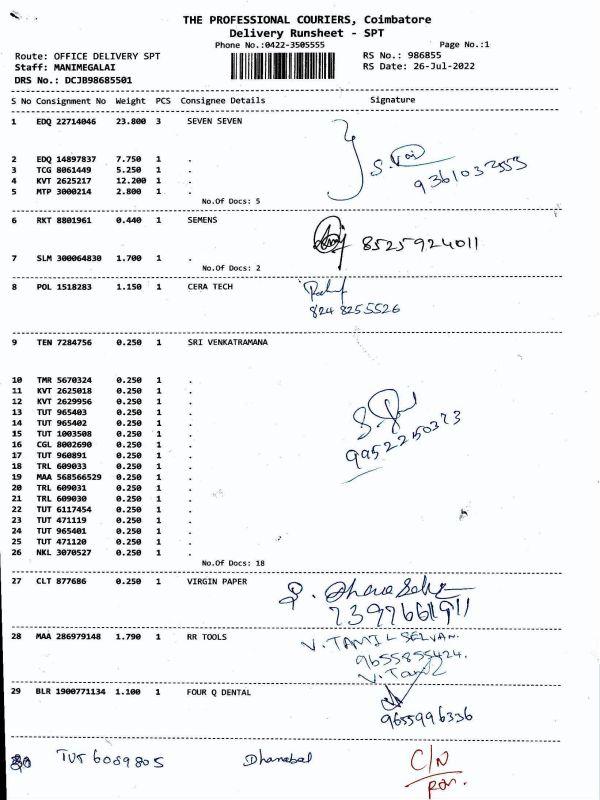 THE PROFESSIONAL COURIERS, Coimbatore
Delivery Runsheet - SPT
Phone No.:0422-3505555 Page No.:1
Route: OFFICE DELIVERY SPT RS No.: 986855
Staff: MANIMEGALAI RS Date: 26-Jul-2022
DRS No.: DCJB98685501
S No Consignment No Weight PCS Consignee Details Signature
1 EDQ 22714046 23.800 3 SEVEN SEVEN
2 EDQ 14897837 7.750 1 .
3 TCG 8061449 5.250 1 .
4 KVT 2625217 12.200 1 .
5 MTP 3000214 2.800 1 .
No.Of Docs: 5
6 RKT 8801961 0.440 1 SEMENS
8525924011
7 SLM 300064830 1.700 1 .
No.Of Docs: 2
8 POL 1518283 1.150 1 CERA TECH
8248255526
9 TEN 7284756 0.250 1 SRI VENKATRAMANA
10 TMR 5670324 0.250 1 .
11 KVT 2625018 0.250 1 .
12 KVT 2629956 0.250 1 .
13 TUT 965403 0.250 1 .
14 TUT 965402 0.250 1 .
15 TUT 1003508 0.250 1 .
16 CGL 8002690 0.250 1 .
17 TUT 960891 0.250 1 .
18 TRL 609033 0.250 1 .
19 MAA 568566529 0.250 1 .
20 TRL 609031 0.250 1 .
21 TRL 609030 0.250 1 .
22 TUT 6117454 0.250 1 .
23 TUT 471119 0.250 1 .
24 TUT 965401 0.250 1 .
25 TUT 471120 0.250 1 .
26 NKL 3070527 0.250 1 .
No.Of Docs: 18
27 CLT 877686 0.250 1 VIRGIN PAPER
7397661911
28 MAA 286979148 1.790 1 RR TOOLS V. TAMIL SELVAN.
9655855424.
V. Tamil
29 BLR 1900771134 1.100 1 FOUR Q DENTAL
9655996336
30 TUT 6089805 Dhanabal C/N